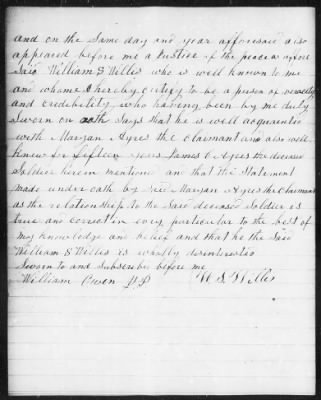 and on the same day and year afforesaid also
appeared before me a Justice of the peace as afore
Said William S Willis who is well known to me
and whome I hereby certify to be a person of veracity
and credibility, who having been by me duly
Sworn on oath Says that he is well acquainted
with Maryan Ayres the claimant and also well
knew for fifteen years James C Ayres the deceased
Soldier herein mentione and that the Statement
made under oath by Said Maryan Ayres the Claimant
as the relationship to the Said deceased Soldier is
true and correct in every particular to the best of
my knowledge and belief and that he the Said
William S Willis is wholly disinterested
Sworn to and Subscribed before me
William Owen J.P. W. S. Willis